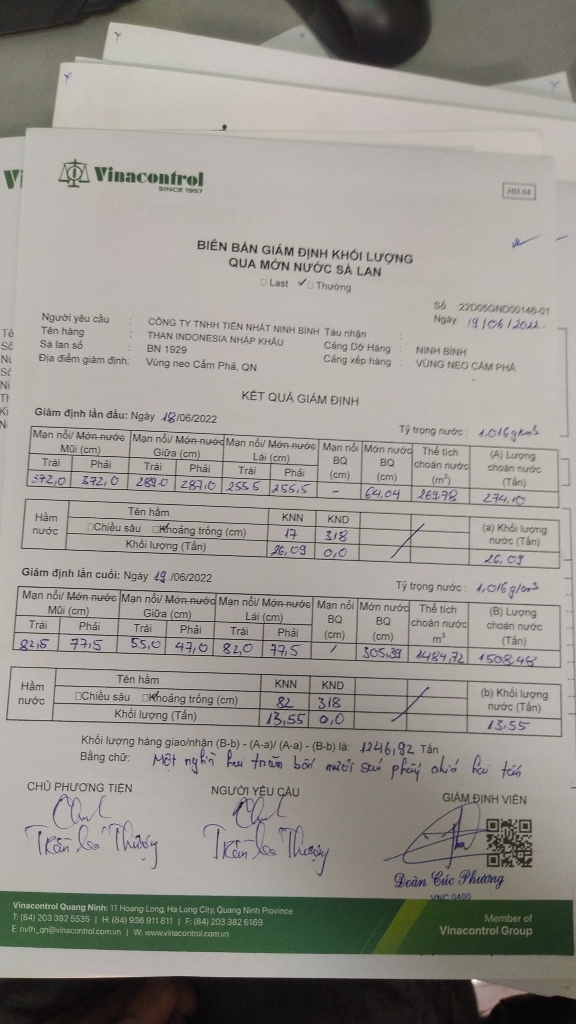 Vinacontrol
SINCE 1957
HH.04
BIÊN BẢN GIÁM ĐỊNH KHỐI LƯỢNG
QUA MỚN NƯỚC SÀ LAN
Last Thường
Số : 22D05GND00146-01
Ngày: 19/06/2022.
Người yêu cầu : CÔNG TY TNHH TIẾN NHẤT NINH BÌNH Tàu nhận :
Tên hàng : THAN INDONESIA NHẬP KHẨU Cảng Dỡ Hàng : NINH BÌNH
Sà lan số : BN 1929 Cảng xếp hàng : VÙNG NEO CẨM PHẢ
Địa điểm giám định: Vùng neo Cẩm Phả, QN
KẾT QUẢ GIÁM ĐỊNH
Giám định lần đầu: Ngày 18/06/2022 Tỷ trọng nước : 1,016g/cm3
Mạn nổi/ Mớn nước Mũi (cm) Mạn nổi/ Mớn nước Giữa (cm) Mạn nổi/ Mớn nước Lái (cm) Mạn nổi BQ (cm) Mớn nước BQ (cm) Thể tích choán nước (m3) (A) Lượng choán nước (Tấn)
Trái Phải Trái Phải Trái Phải
372,0 372,0 289,0 287,0 255,5 255,5 - 64,04 269,78 274,10
Hầm nước Tên hầm KNN KND (a) Khối lượng nước (Tấn)
Chiều sâu Khoảng trống (cm) 17 318
Khối lượng (Tấn) 26,09 0,0 26,09
Giám định lần cuối: Ngày 19/06/2022 Tỷ trọng nước : 1,016g/cm3
Mạn nổi/ Mớn nước Mũi (cm) Mạn nổi/ Mớn nước Giữa (cm) Mạn nổi/ Mớn nước Lái (cm) Mạn nổi BQ (cm) Mớn nước BQ (cm) Thể tích choán nước m3 (B) Lượng choán nước (Tấn)
Trái Phải Trái Phải Trái Phải
82,5 77,5 55,0 47,0 82,0 77,5 / 305,39 1484,72 1508,48
Hầm nước Tên hầm KNN KND (b) Khối lượng nước (Tấn)
Chiều sâu Khoảng trống (cm) 82 318
Khối lượng (Tấn) 13,55 0,0 13,55
Khối lượng hàng giao/nhận (B-b) - (A-a)/ (A-a) - (B-b) là: 1246,92 Tấn
Bằng chữ: Một nghìn hai trăm bốn mươi sáu phẩy chín hai tấn
CHỦ PHƯƠNG TIỆN NGƯỜI YÊU CẦU GIÁM ĐỊNH VIÊN
Trần Bá Thượng Trần Bá Thượng
Đoàn Cúc Phương
VNC 0400
Vinacontrol Quang Ninh: 11 Hoang Long, Ha Long City, Quang Ninh Province
T: (84) 203 382 5535 | H: (84) 936 911 811 | F: (84) 203 382 6169
E: nvth_qn@vinacontrol.com.vn | W: www.vinacontrol.com.vn
Member of
Vinacontrol Group